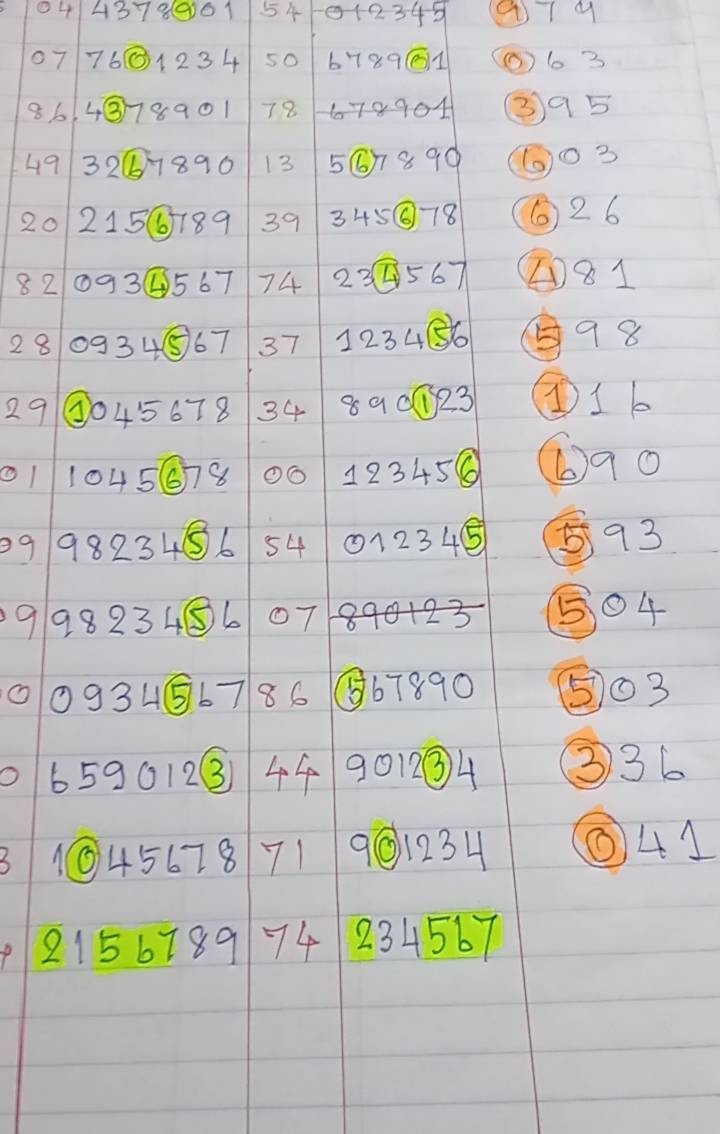 04 4378901 54 012345 974
07 7601234 50 678901 063
86 4378901 78 678901 395
49 3267890 13 567890 603
20 2156789 39 345678 626
82 0934567 74 234567 481
28 0934567 37 123456 598
29 1045678 34 890123 116
01 1045678 00 123456 690
09 9823456 54 012345 593
09 9823456 07 890123 504
0 0934567 86 567890 503
0 6590123 44 901234 336
3 1045678 71 901234 041
2156789 74 234567